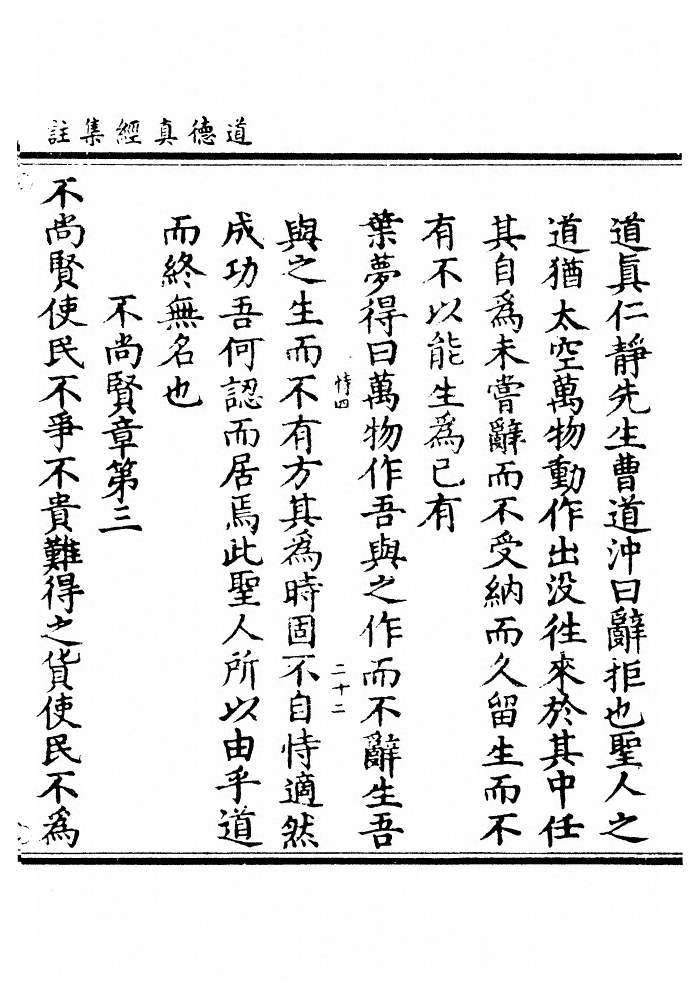 道德真經集註
道眞仁靜先生曹道沖曰辭拒也聖人之
道猶太空萬物動作出没徃來於其中任
其自爲未嘗辭而不受納而久留生而不
有不以能生爲已有
葉夢得曰萬物作吾與之作而不辭生吾
恃四
二十二
與之生而不有方其爲時固不自恃適然
成功吾何認而居焉此聖人所以由乎道
而終無名也
不尚賢章第三
不尚賢使民不爭不貴難得之貨使民不爲